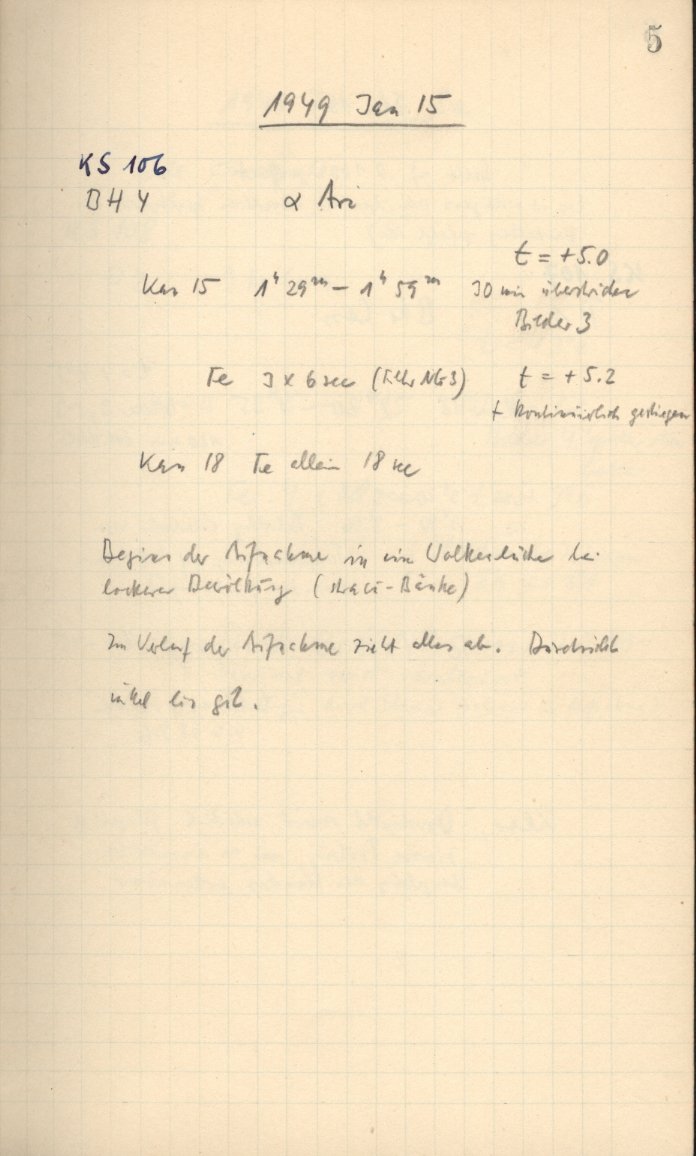 5
1949 Jan 15
KS 106
BH 4 α Ari
t = +5.0
Kas 15 1ʰ 29ᵐ – 1ʰ 59ᵐ 30 min überstrichen
Bilder 3
Fe 3 x 6 sec (Filter NG3) t = +5.2
t kontinuierlich gestiegen
Kas 18 Fe allein 18 sec
Beginn der Aufnahme in eine Wolkenlücke bei
lockerer Bewölkung (Bänke)
Im Verlauf der Aufnahme zieht alles ab. Durchsicht
mittel bis gut.